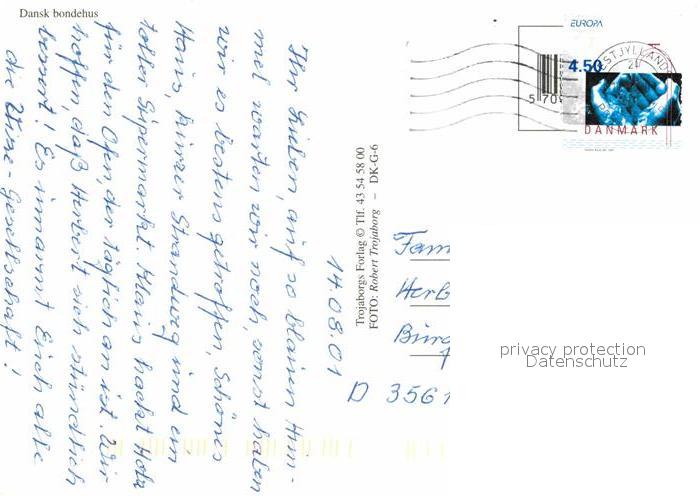 Dansk bondehus
14 08 01
Ihr Lieben, auf so blauen Him-
mel warten wir noch, sonst haben
wir es bestens getroffen, schönes
Haus, kurzer Strandweg und ein
toller Supermarkt. Klaus hackt Holz
für den Ofen, der täglich an ist. Wir
hoffen, daß Herbert sich stündlich
bessert! Es umarmt Euch alle
die Urine-Gesellschaft!
Trojaborgs Forlag © Tlf. 43 54 58 00
FOTO: Robert Trojaborg – DK-G-6
EUROPA
4.50
5 709
DANMARK
ESTJYLLAND
Fam
Herb
Burg
D 3561
privacy protection
Datenschutz